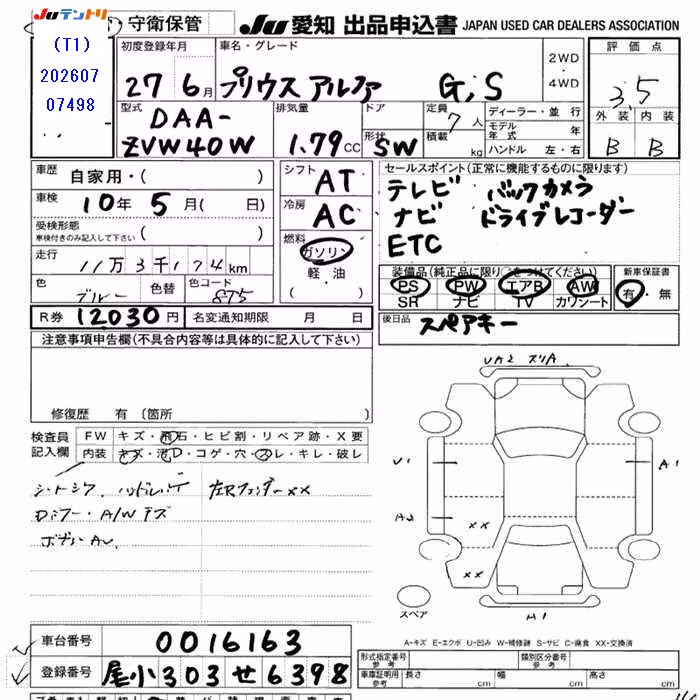 Juテントリ
守衛保管
Ju 愛知 出品申込書 JAPAN USED CAR DEALERS ASSOCIATION
(T1)
202607
07498
初度登録年月
27年 6月
車名・グレード
プリウスアルファ G;S
2WD
・
4WD
評価点
3.5
外装 内装
B B
型式
DAA-
ZVW40W
排気量
1.79cc
ドア
形状
SW
定員
7人
積載
kg
ディーラー・並行
モデル年式 年
ハンドル 左・右
車歴
自家用・( )
車検
10年 5月( 日)
受検形態
車検付きのみ記入して下さい ( )
走行
11万3千174km
色
ブルー
色替
色コード
8T5
シフト
AT
冷房
AC
燃料
ガソリン
軽・油
( ・ )
セールスポイント(正常に機能するものに限ります)
テレビ バックカメラ
ナビ ドライブレコーダー
ETC
装備品(純正品に限り○をつけてください)
PS PW エアB AW
SR ナビ TV カワシート
新車保証書
有・無
R券 12030円 名変通知期限 月 日
後日品
スペアキー
注意事項申告欄(不具合内容等は具体的に記入して下さい)
修復歴 有 〔箇所 〕
検査員
記入欄
FW キズ・飛石・ヒビ割・リペア跡・X要
内装 キズ・汚レ・コゲ・穴・スレ・キレ・破レ
シートシワ 左Rフェンダーxx
Dミラー・A/Wキズ
UA2 スリA
U1
A1
A2
xx
xx
A1
スペア
A-キズ E-エクボ U-凹み W-補修跡 S-サビ C-腐食 XX-交換済
車台番号 0016163
登録番号 尾小 303 せ 6398
形式指定番号
参考
類別区分番号
参考
車庫証明用
参考
長さ cm 幅 cm 高さ cm